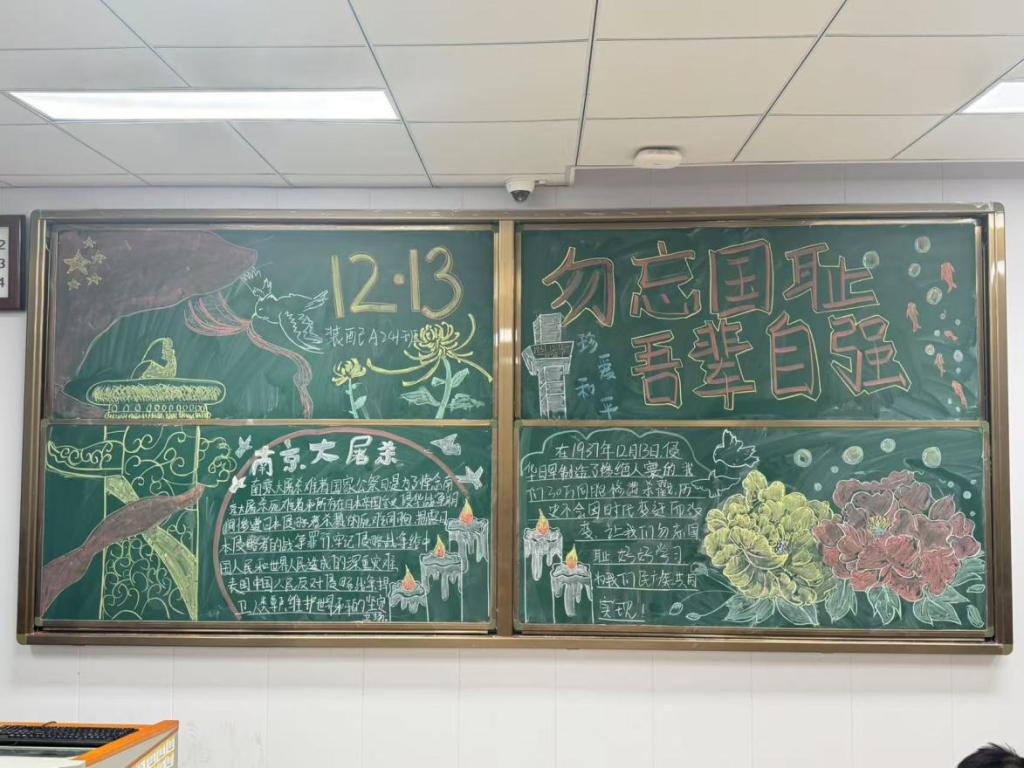 12·13
装配A24H班
勿忘国耻
吾辈自强
珍爱和平
南京大屠杀
南京大屠杀死难者国家公祭日是为了悼念南
京大屠杀死难者和所有在日本帝国主义侵华战争期
间惨遭日本侵略者杀戮的死难同胞 揭露日
本侵略者的战争罪行牢记侵略战争给中
国人民和世界人民造成的深重灾难
表明中国人民反对侵略战争捍
卫人类尊严维护世界和平的坚定
立场
在1937年12月13日,侵
华日军制造了惨绝人寰的 我
们30万同胞惨遭杀戮,历
史不会因时代变迁而改
变,让我们勿忘国
耻 好好学习
为我们民族共同
实现!
2
3
4